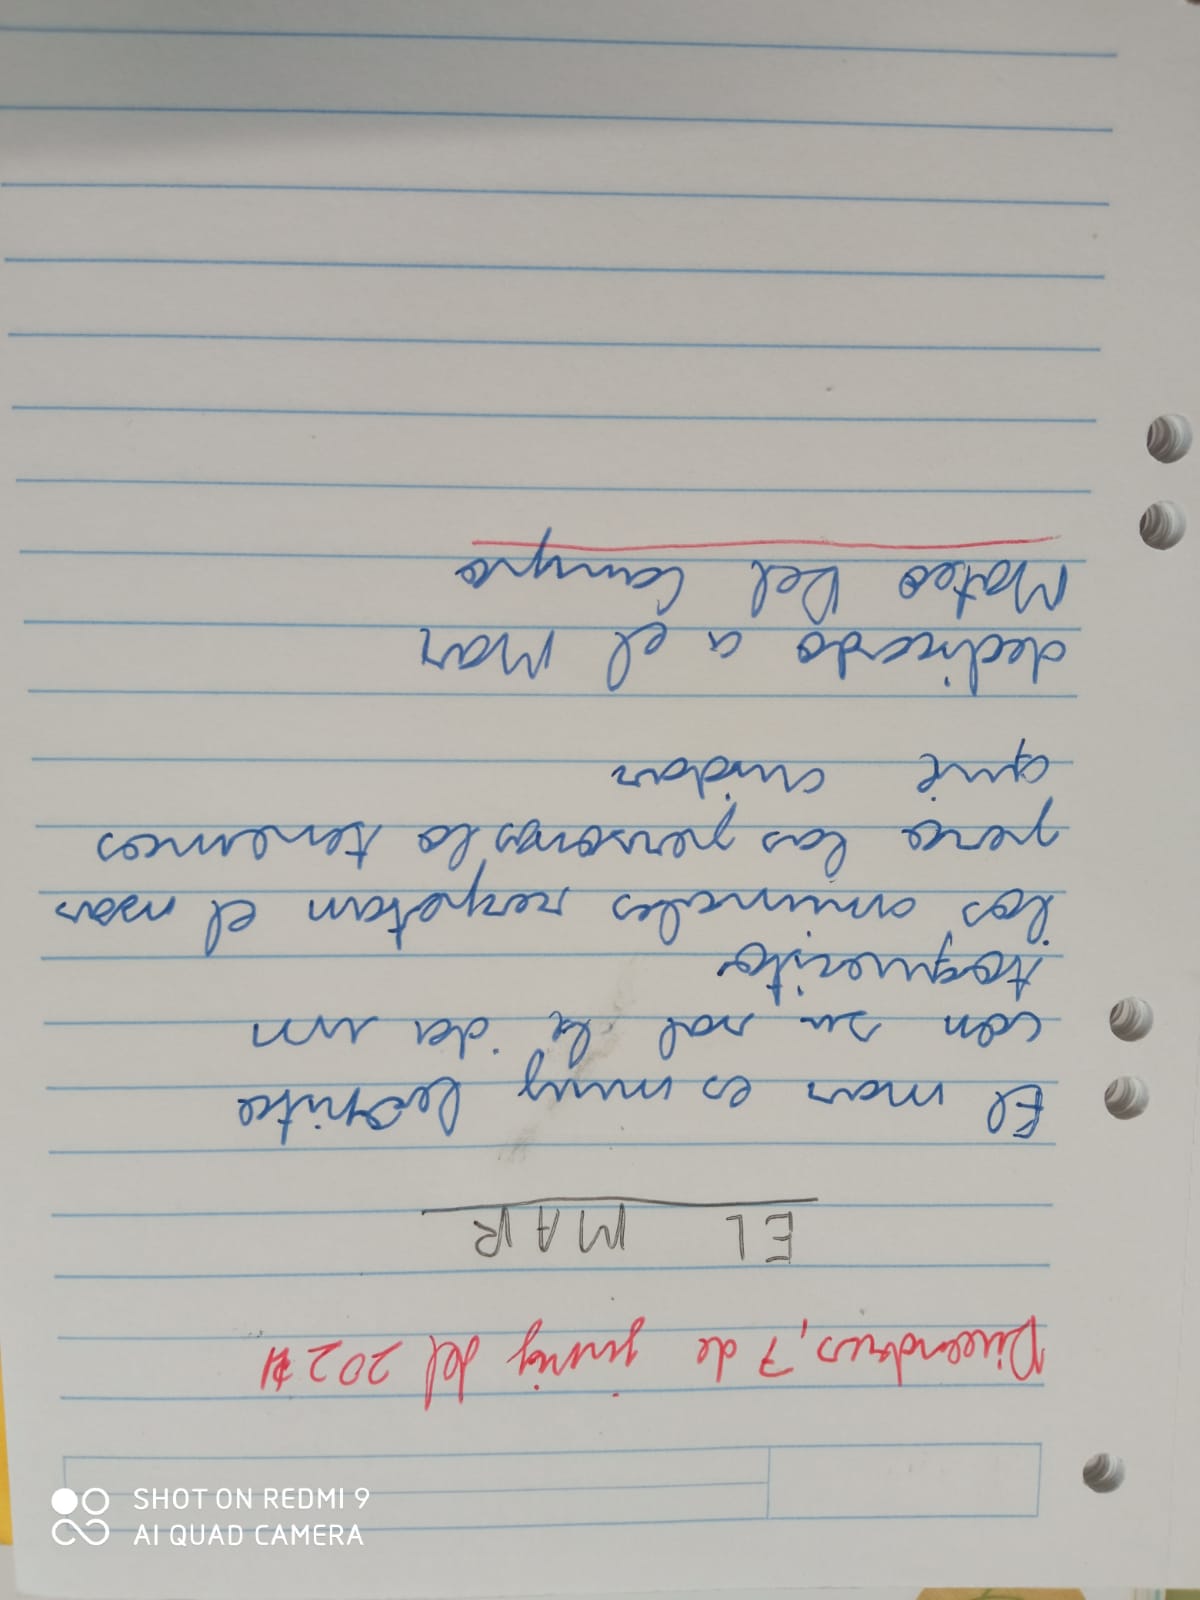 Divendres, 7 de juny del 2021
EL MAR
El mar es muy bonito
con su sal le da un
toquecito
los animales respetan el mar
pero las personas lo tenemos
qué cuidar
dedicado a el Mar
Mateo Del Campo
SHOT ON REDMI 9
AI QUAD CAMERA